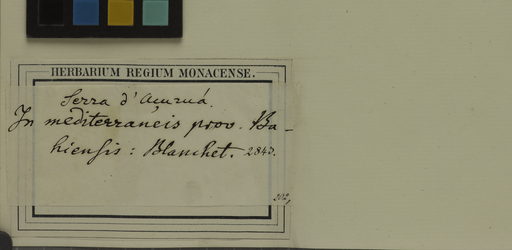 HERBARIUM REGIUM MONACENSE.
Serra d'Acuruá.
In mediterraneis prov. Ba-
hiensis: Blanchet. 2843.
202,